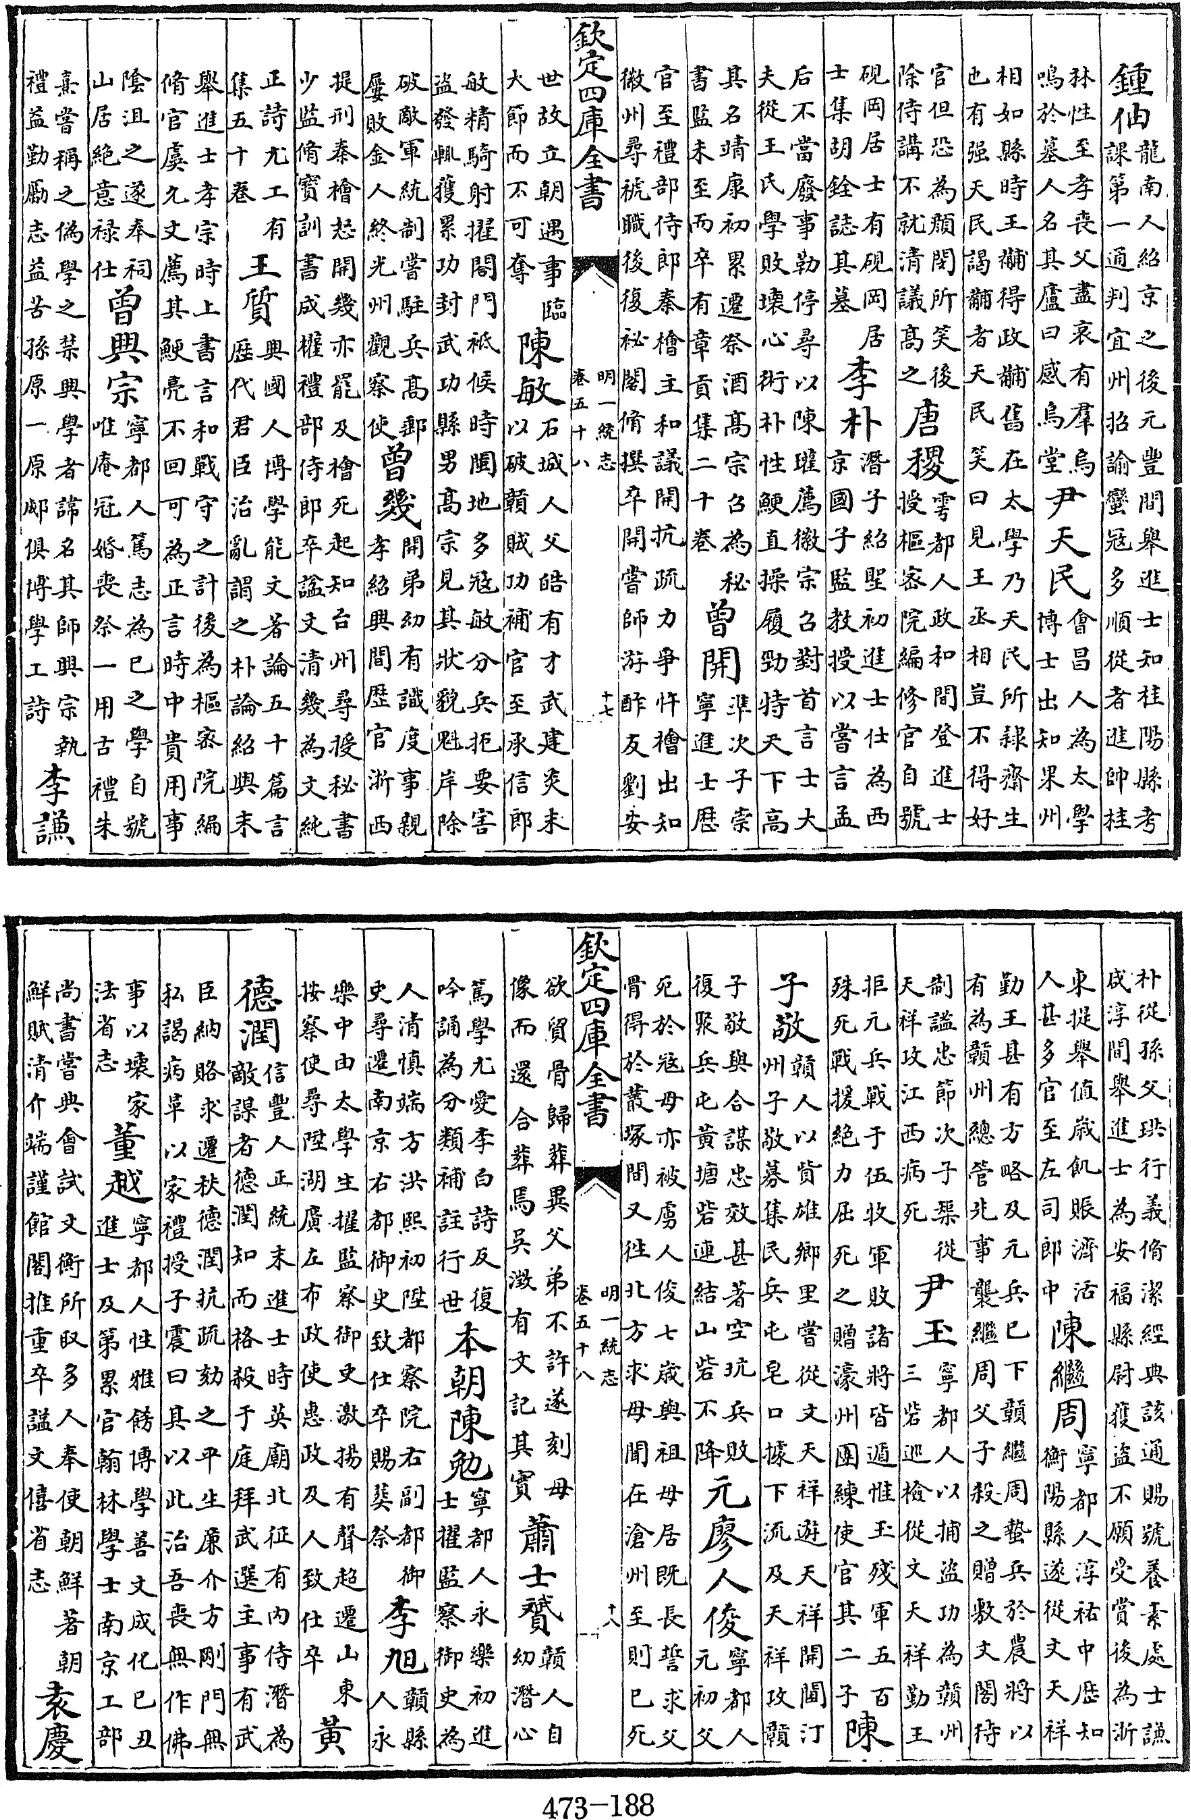 鍾伷
龍南人紹京之後元豐間舉進士知桂陽縣考
課第一通判宜州招諭蠻冦多順從者進帥桂
性至孝喪父盡哀有羣烏
鳴於墓人名其廬曰感烏堂
尹天民
會昌人為太學
博士出知果州
相如縣時王黼得政黼舊在太學乃天民所隷齋生
也有强天民謁黼者天民笑曰見王丞相豈不得好
官但恐為顏閔所笑後
除侍講不就清議髙之
唐稷
雩都人政和間登進士
授樞宻院編修官自號
硯岡居士有硯岡居
士集胡銓誌其墓
李朴
潛子紹聖初進士仕為西
京國子監教授以嘗言孟
后不當廢事勒停尋以陳瓘薦徽宗召對首言士大
夫從王氏學敗壊心術朴性鯁直操履勁特天下高
其名靖康初累遷祭酒髙宗召為秘
書監未至而卒有章貢集二十卷
曾開
準次子崇
寧進士厯
官至禮部侍郎秦檜主和議開抗疏力爭忤檜出知
徽州尋褫職後復祕閣脩撰卒開嘗師游酢友劉安
欽定四庫全書
明一統志
卷五十八
十七
世故立朝遇事臨
大節而不可奪
陳敏
石城人父皓有才武建炎末
以破贛賊功補官至承信郎
敏精騎射擢閤門祗候時閩地多冦敏分兵扼要害
盜發輒獲累功封武功縣男髙宗見其狀貌魁岸除
破敵軍統制嘗駐兵髙郵
屢敗金人終光州觀察使
曾幾
開弟幼有識度事親
孝紹興間歴官浙西
提刑秦檜怒開幾亦罷及檜死起知台州尋授秘書
少監脩寳訓書成權禮部侍郎卒諡文清幾為文純
正詩尤工有
集五十卷
王質
興國人博學能文著論五十篇言
歴代君臣治亂謂之朴論紹興末
舉進士孝宗時上書言和戰守之計後為樞宻院編
脩官虞允文薦其鯁亮不回可為正言時中貴用事
陰沮之遂奉祠
山居絶意禄仕
曾興宗
寧都人篤志為已之學自號
唯庵冠婚喪祭一用古禮朱
熹嘗稱之偽學之禁興學者諱名其師興宗執
禮益勤勵志益苦孫原一原郕俱博學工詩
李謙
朴從孫父珙行義脩潔經典該通賜號養素處士謙
咸淳間舉進士為安福縣尉獲盜不願受賞後為浙
東提舉值歳飢賑濟活
人甚多官至左司郎中
陳繼周
寧都人淳祐中歴知
衡陽縣遂從文天祥
勤王甚有方略及元兵已下贛繼周蟄兵於農將以
有為贛州總管兆事襲繼周父子殺之贈敷文閣待
制諡忠節次子榘從
天祥攻江西病死
尹玉
寧都人以捕盜功為贛州
三砦巡檢從文天祥勤王
拒元兵戰于伍牧軍敗諸將皆遁惟玉殘軍五百
殊死戰援絶力屈死之贈濠州團練使官其二子
陳
子敬
贛人以貲雄鄉里嘗從文天祥遊天祥開閫汀
州子敬募集民兵屯皂口據下流及天祥攻贛
子敬與合謀忠效甚著空坑兵敗
復聚兵屯黃塘砦連結山砦不降
元廖人俊
寧都人
元初父
死於冦母亦被虜人俊七歳與祖母居既長誓求父
骨得於叢塚間又徃北方求母聞在滄州至則已死
欽定四庫全書
明一統志
卷五十八
十八
欲貿骨歸葬異父弟不許遂刻母
像而還合葬焉吳澂有文記其實
蕭士贇
贛人自
幼潛心
篤學尤愛李白詩反復
吟誦為分類補註行世
本朝陳勉
寧都人永樂初進
士擢監察御史為
人清慎端方洪熙初陞都察院右副都御
史尋遷南京右都御史致仕卒賜葬祭
李旭
贛縣
人永
樂中由太學生擢監察御史激揚有聲超遷山東
按察使尋陞湖廣左布政使惠政及人致仕卒
黃
德潤
信豐人正統末進士時英廟北征有内侍潛為
敵謀者德潤知而格殺于庭拜武選主事有武
臣納賂求遷秩德潤抗疏劾之平生廉介方剛門無
私謁病革以家禮授子震曰其以此治吾喪無作佛
事以壊家
法省志
董越
寧都人性雅飭博學善文成化已丑
進士及第累官翰林學士南京工部
尚書嘗典會試文衡所取多人奉使朝鮮著朝
鮮賦清介端謹館閣推重卒諡文僖省志
袁慶
473-188